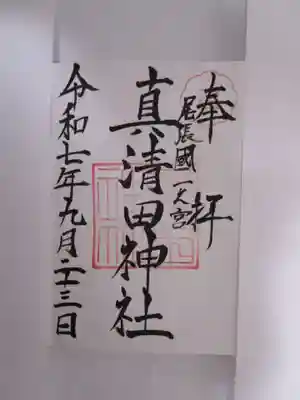 奉拝
尾張國一之宮
真清田神社
令和七年九月二十三日